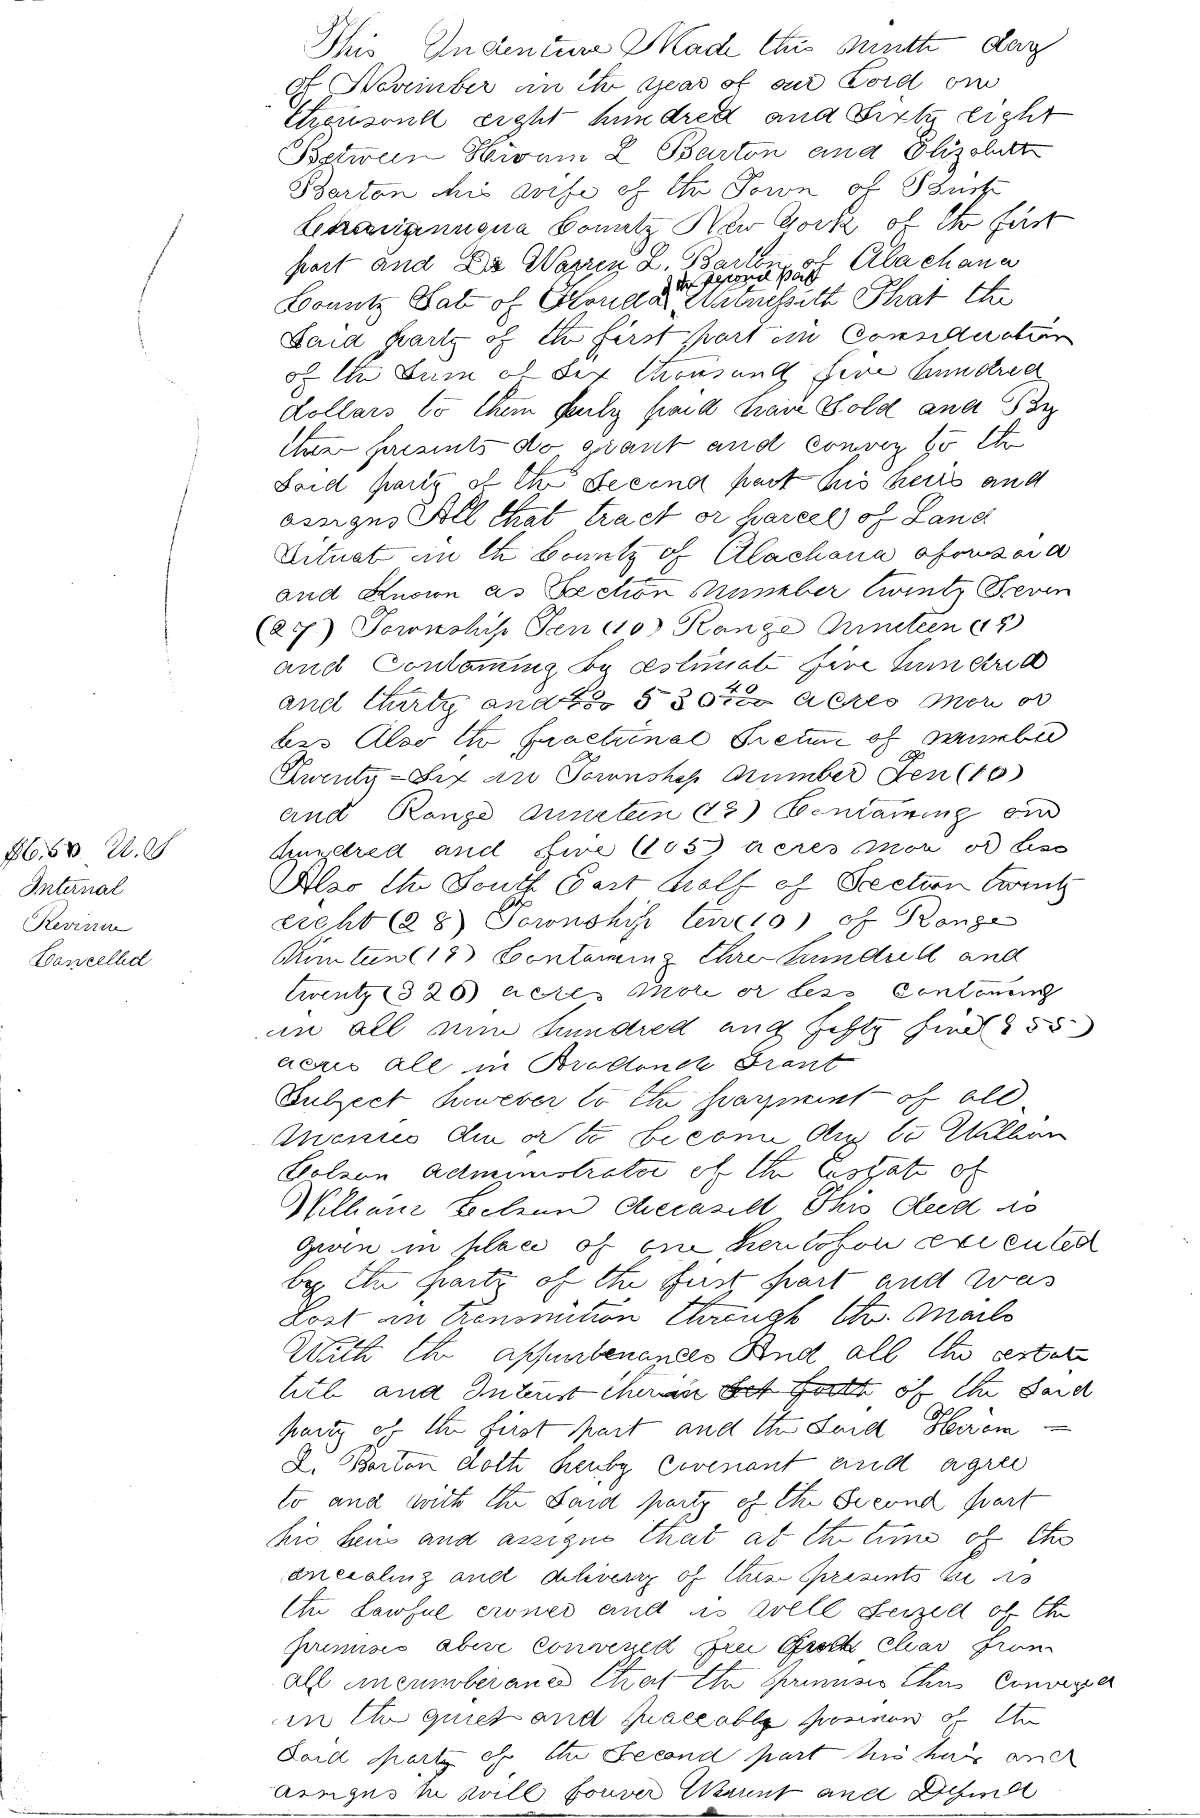 This Indenture Made this ninth day
of November in the year of our Lord one
thousand eight hundred and Sixty eight
Between Hiram L Barton and Elizabeth
Barton his wife of the Town of
County New York of the first
part and Dr Warren L. Barton of Alachana
of the second part
County Sate of Florida Witnesseth That the
Said party of the first part in Consideration
of the Sum of Six thousand five hundred
dollars to them duly paid have Sold and By
these presents do grant and convey to the
Said party of the Second part his heirs and
assigns All that tract or parcel of Land
Situat in the County of Alachana aforesaid
and Known as Section number twenty Seven
(27) Township Ten (10) Range Nineteen (19)
and Containing by estimate five hundred
and thirty and 40/100 530 40/100 acres more or
less Also the fractional Section of number
Twenty-Six in Township number Ten (10)
and Range nineteen (19) Containing one
hundred and five (105) acres more or less
Also the South East half of Section twenty
eight (28) Township ten (10) of Range
Nineteen (19) Containing three hundred and
twenty (320) acres more or less containing
in all nine hundred and fifty five (955)
acres all in Grant
Subject however to the payment of all
monies due or to become due to William
Colson administrator of the Estate of
William Colson deceased This deed is
given in place of one heretofore executed
by the party of the first part and was
Lost in transmition through the mails
With the appurtenances And all the estate
title and Interest therein set forth of the Said
party of the first part and the Said Hiram =
L. Barton doth hereby covenant and agree
to and with the Said party of the Second part
his heirs and assigns that at the time of the
ensealing and delivery of these presents he is
the Lawful owner and is well Seized of the
premises above conveyed free clear from
all incumberance that the premises thus Conveyed
in the quiet and peaceably of the
Said party of the Second part his heirs and
assigns he will forever Warent and Defend
$6.50 U.S
Internal
Revinue
Cancelled